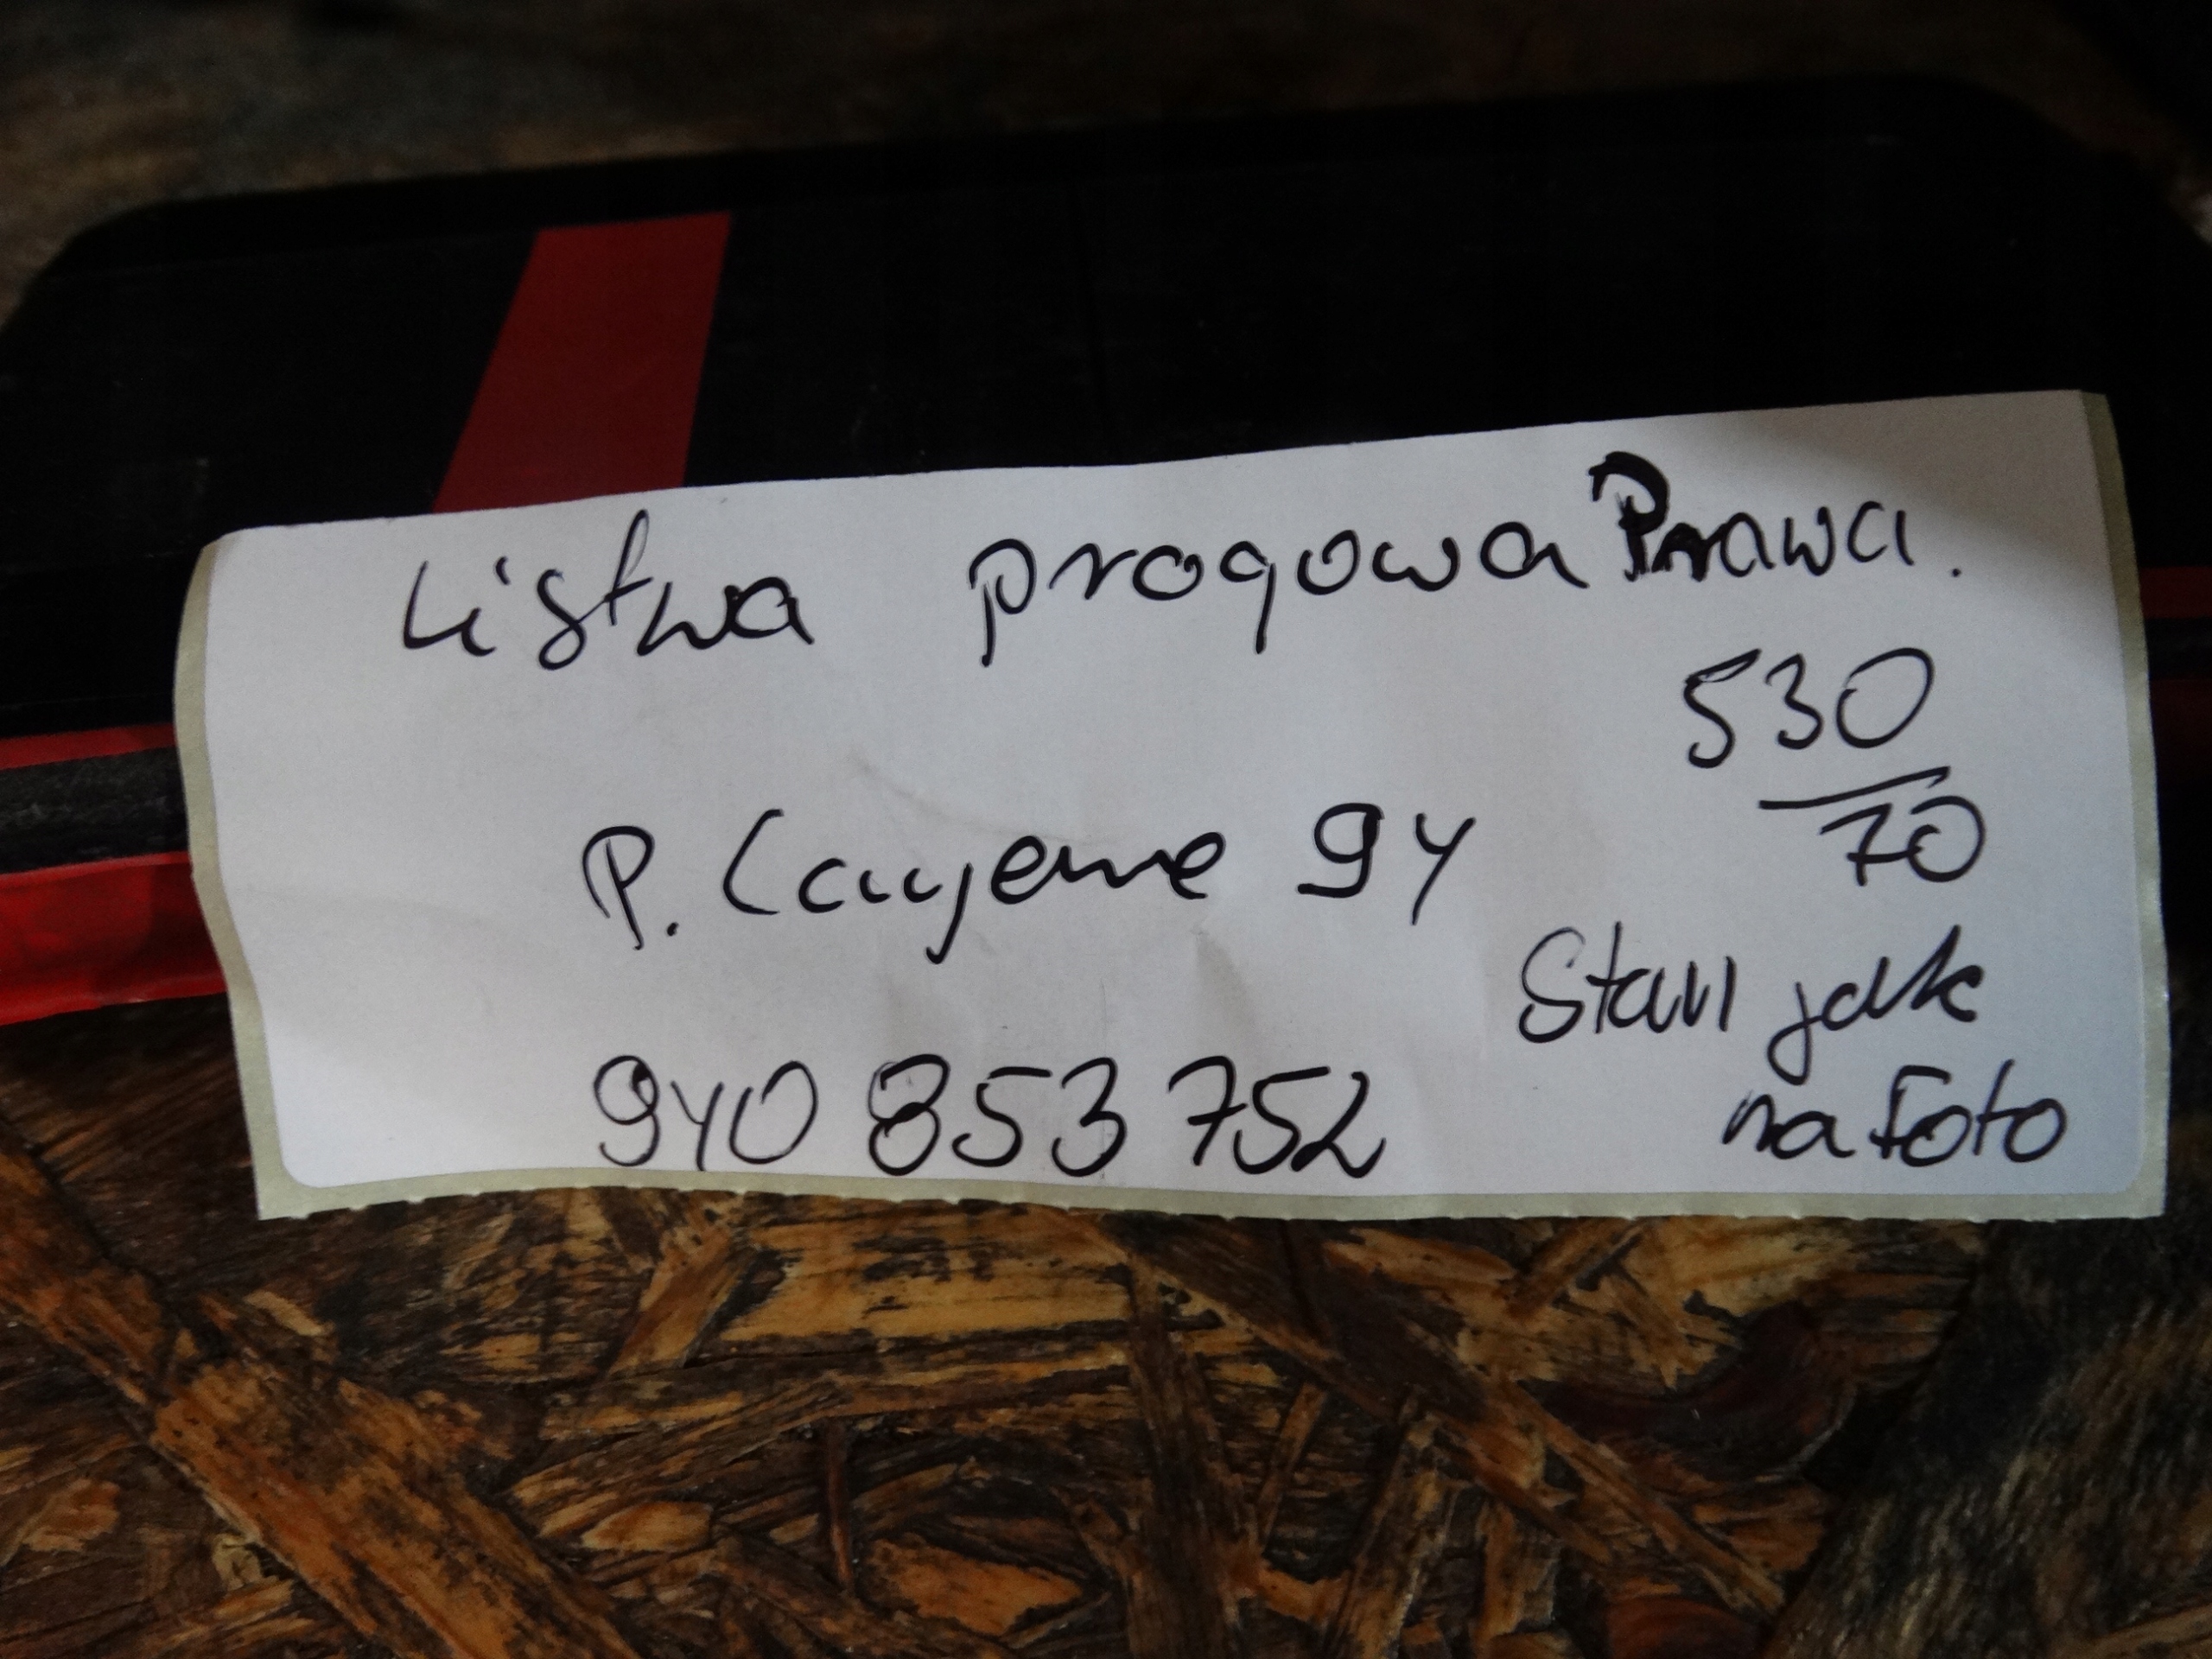 Listwa progowa Prawa.
530
70
P. Cayenne 9Y
Stan jak
na Foto
9Y0 853 752